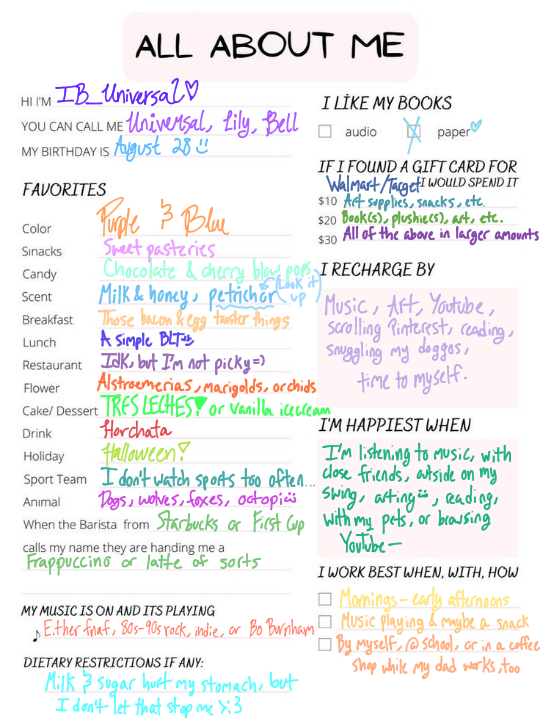 ALL ABOUT ME
HI I'M IB_Universal♡
YOU CAN CALL ME Universal, Lily, Bell
MY BIRTHDAY IS August 28
FAVORITES
Color Purple & Blue
Snacks Sweet pasteries
Candy Chocolate & cherry blow pops
Scent Milk & honey, petrichor (Look it up)
Breakfast Those bacon & egg toaster things
Lunch A simple BLT
Restaurant Idk, but I'm not picky=)
Flower Alstroemerias, marigolds, orchids
Cake/ Dessert TRES LECHES! or Vanilla icecream
Drink Horchata
Holiday Halloween!
Sport Team I don't watch sports too often...
Animal Dogs, wolves, foxes, octopi
When the Barista from Starbucks or First Cup
calls my name they are handing me a
Frappuccino or latte of sorts
MY MUSIC IS ON AND ITS PLAYING
Either fnaf, 80s-90s rock, indie, or Bo Burnham
DIETARY RESTRICTIONS IF ANY:
Milk & sugar hurt my stomach, but
I don't let that stop me >:3
I LIKE MY BOOKS
audio paper♡
IF I FOUND A GIFT CARD FOR
Walmart/Target I WOULD SPEND IT
$10 Art supplies, snacks, etc.
$20 Book(s), plushie(s), art, etc.
$30 All of the above in larger amounts
I RECHARGE BY
Music, Art, Youtube,
scrolling Pinterest, reading,
snuggling my doggos,
time to myself.
I'M HAPPIEST WHEN
I'm listening to music, with
close friends, outside on my
swing, arting, reading,
with my pets, or browsing
YouTube—
I WORK BEST WHEN, WITH, HOW
Mornings - early afternoons
Music playing & maybe a snack
By myself, @ school, or in a coffee
shop while my dad works, too